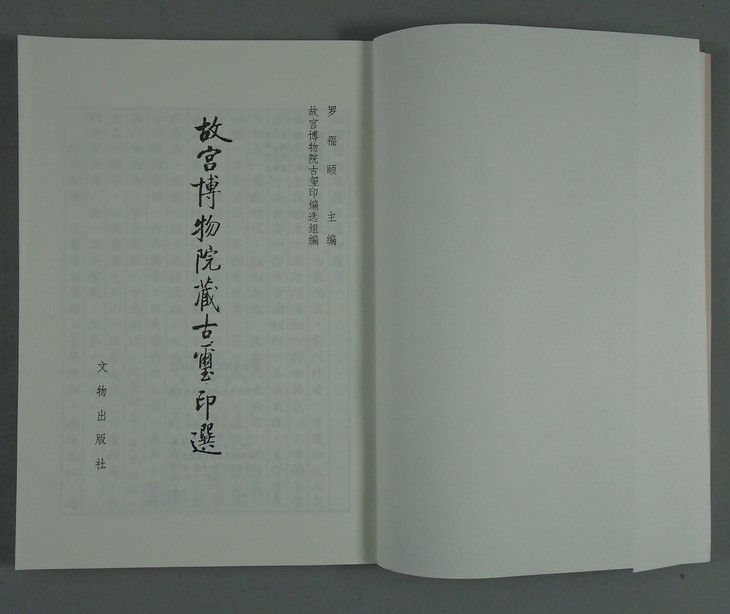 罗福颐 主编
故宫博物院古玺印编选组编
故宫博物院藏古璽印選
文物出版社